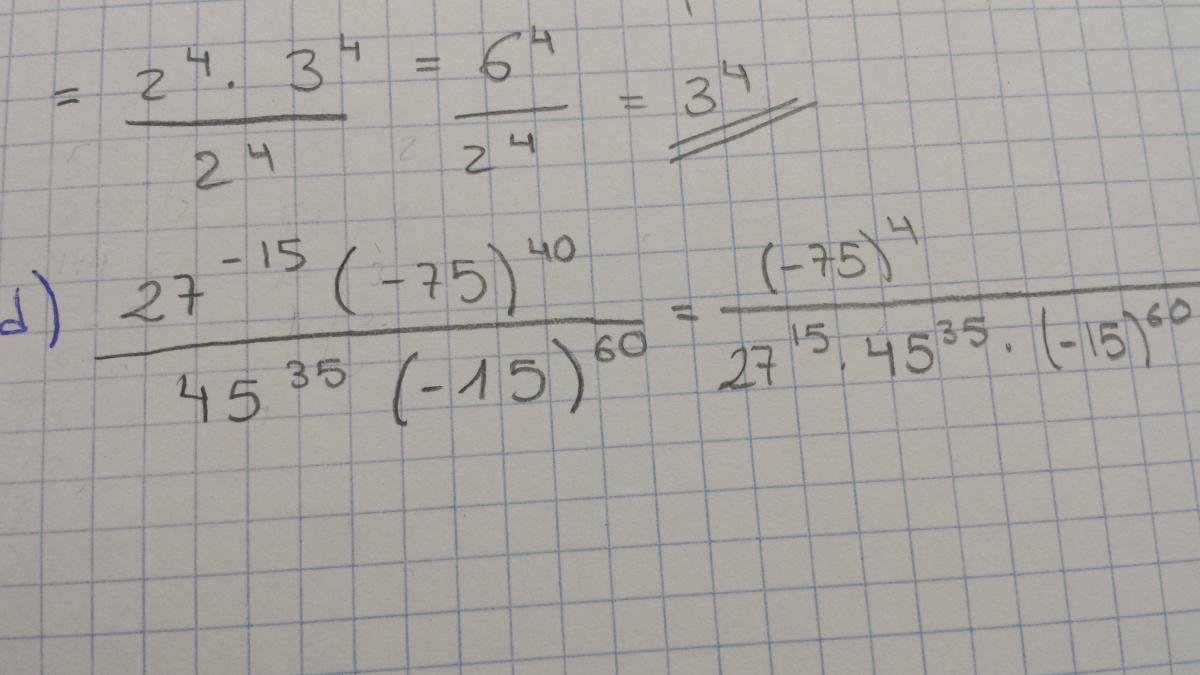 = 2⁴ · 3⁴ / 2⁴ = 6⁴ / 2⁴ = 3⁴
d) 27⁻¹⁵ (-75)⁴⁰ / 45³⁵ (-15)⁶⁰ = (-75)⁴ / 27¹⁵ · 45³⁵ · (-15)⁶⁰